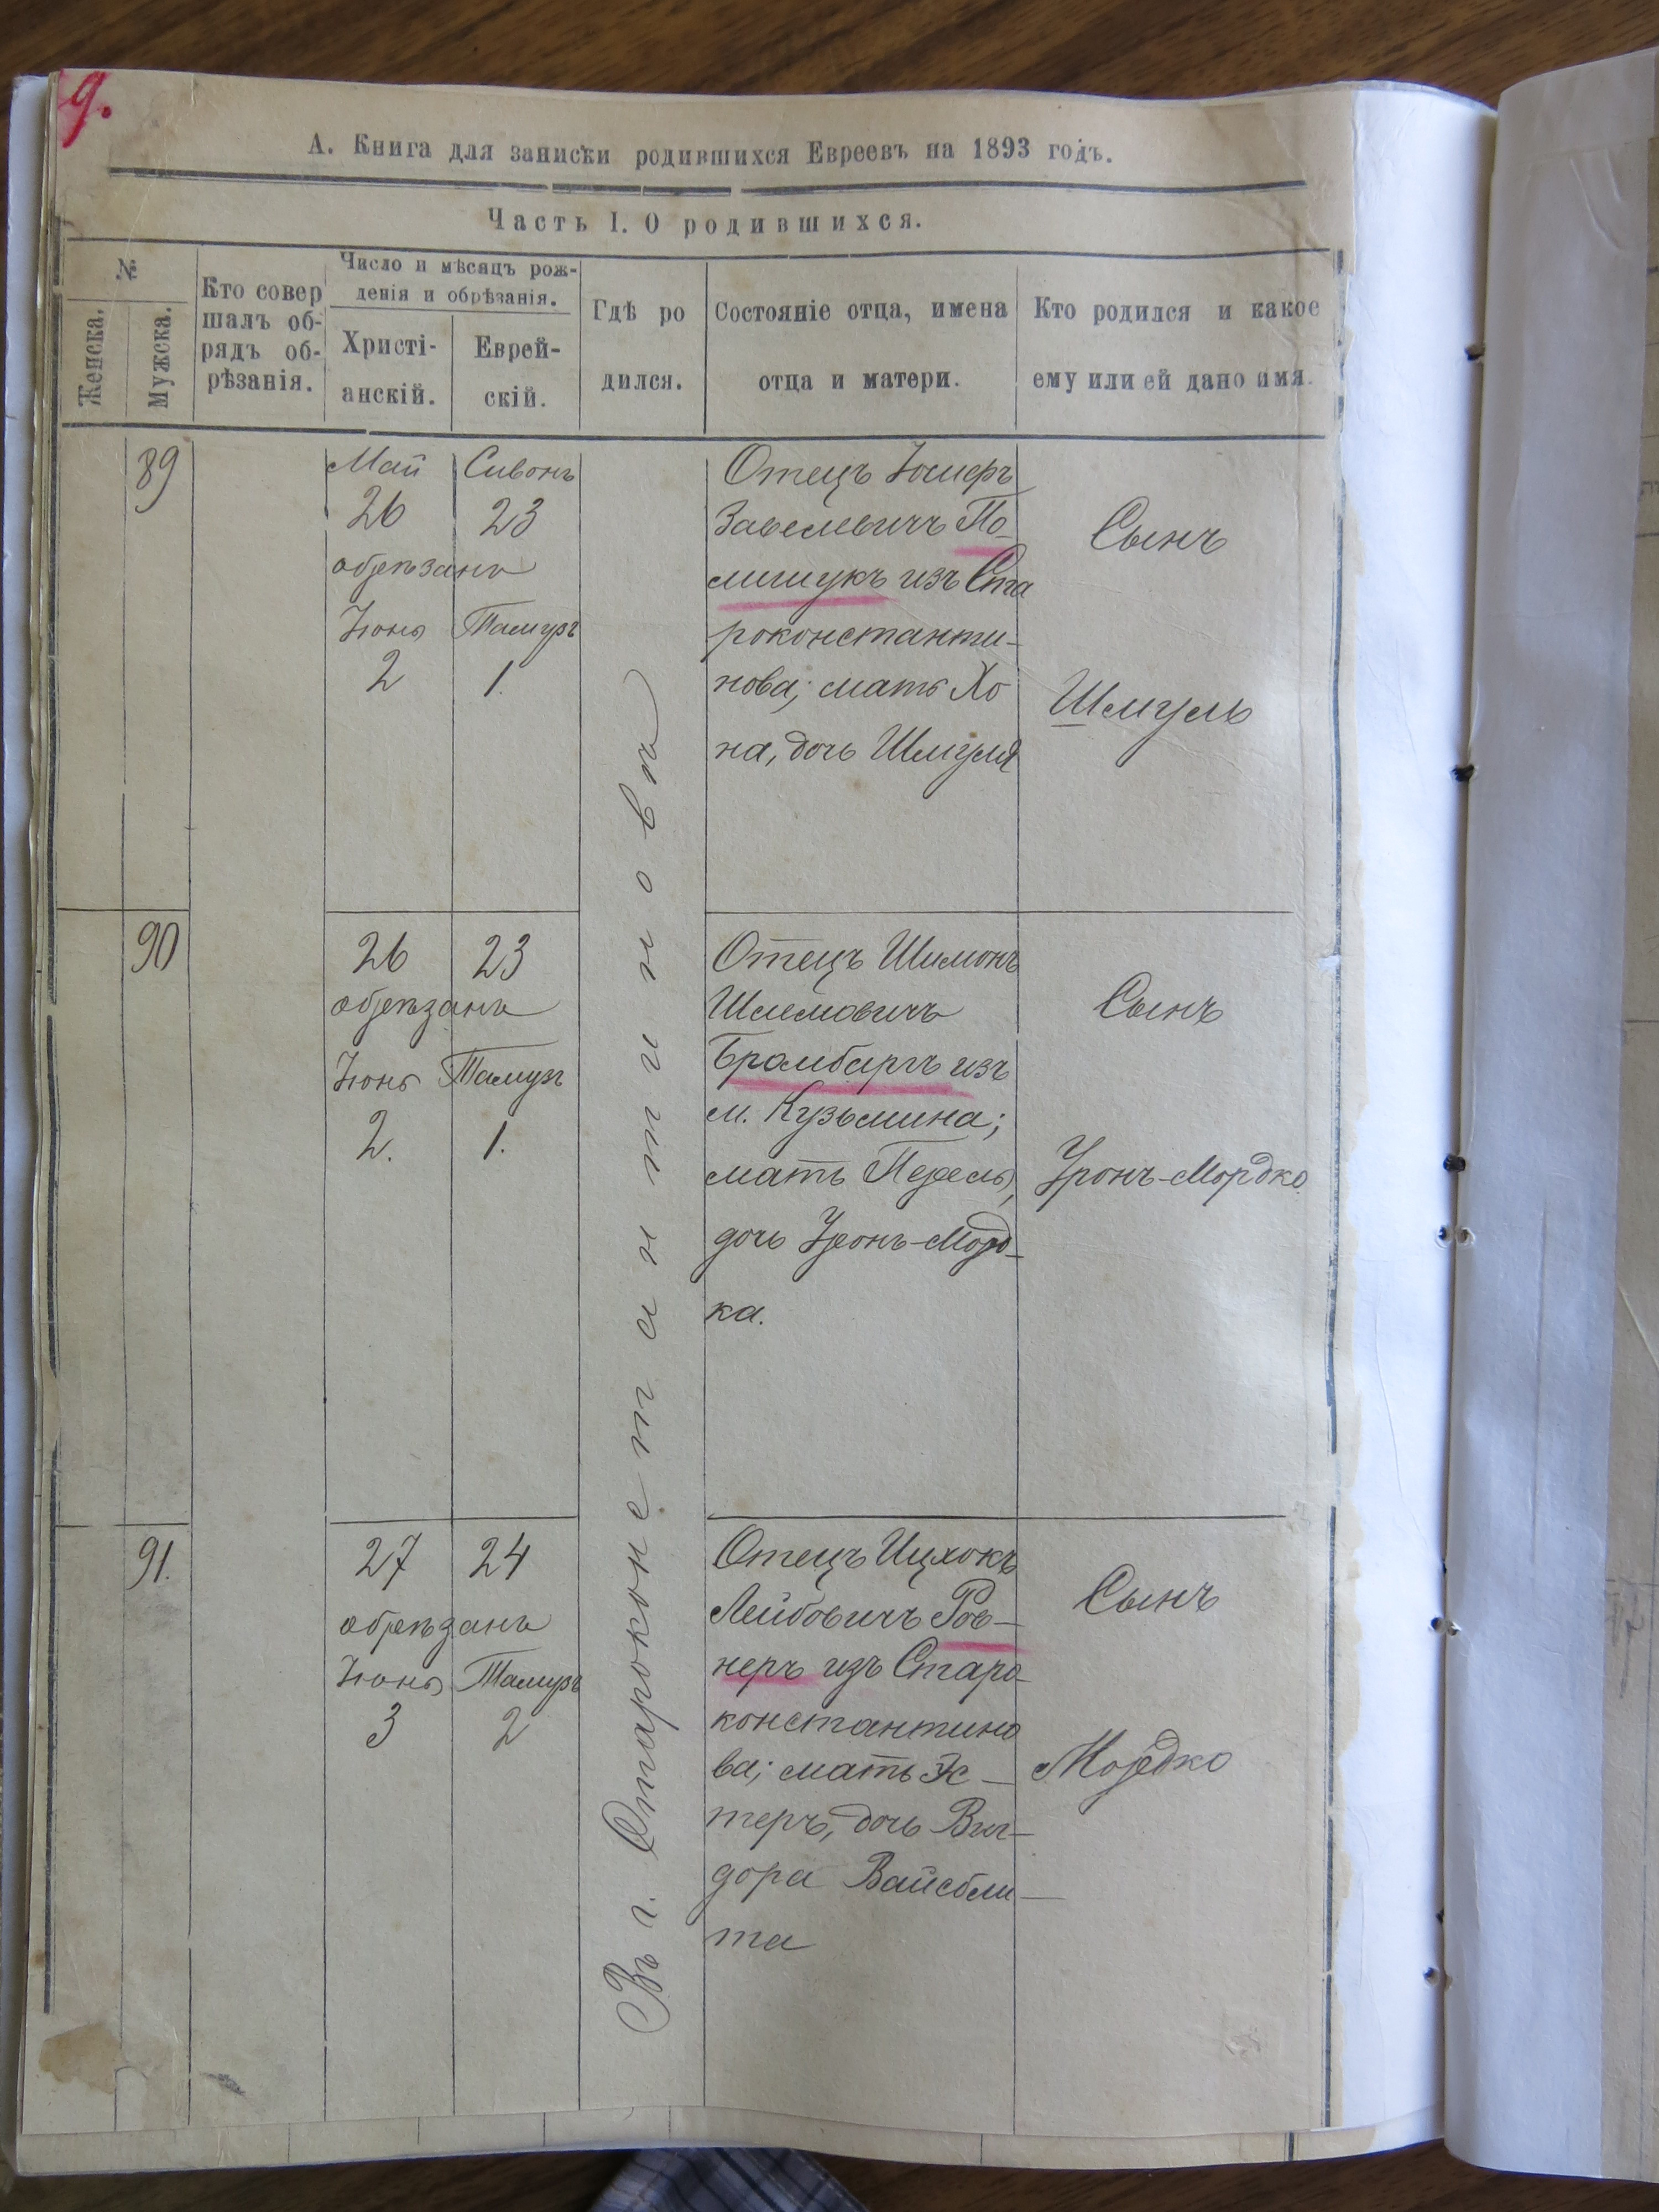 9.
А. Книга для записки родившихся Евреевъ на 1893 годъ.
Часть I. О родившихся.
№
Женска.
Мужска.
Кто совер
шалъ об-
рядъ об-
рѣзанія.
Число и мѣсяцъ рож-
денія и обрѣзанія.
Христі-
анскій.
Еврей-
скій.
Гдѣ ро
дился.
Состояніе отца, имена
отца и матери.
Кто родился и какое
ему или ей дано имя.
Въ г. Староконстантиновѣ
89
Май
26
обрѣзанъ
Іюня
2
Сивонъ
23
Тамузъ
1.
Отецъ Іосифъ
Завелевичъ По-
лищукъ изъ Ста
роконстанти-
нова; мать Хо
на, дочь Шмуля
Сынъ
Шмуль
90
26 23
обрѣзанъ
Іюня Тамузъ
2. 1.
Отецъ Шимонъ
Шлемовичъ
Бромбергъ изъ
м. Кузьмина;
мать Перель,
дочь Уронъ-Морд-
ка.
Сынъ
Уронъ-Мордко
91.
27 24
обрѣзанъ
Іюня Тамузъ
3 2
Отецъ Ицхокъ
Лейбовичъ Ров-
неръ изъ Старо-
константино
ва; мать Эс-
теръ, дочь Виг-
дора Вайсбли-
та
Сынъ
Мордко